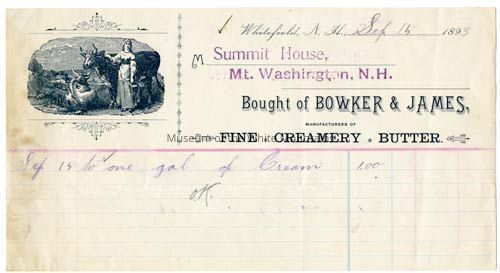 Whitefield, N. H. Sep 15 1893
M Summit House,
Mt. Washington, N.H.
Bought of BOWKER & JAMES,
MANUFACTURERS OF
FINE CREAMERY BUTTER.
Museum of the White
Sep 15 to one gal of Cream 1.00
O.K.